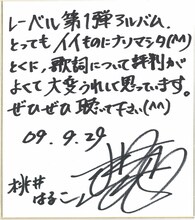 レーベル第1弾アルバム、
とってもイイものにナリマシタ(^^)
とくに、歌詞について評判が
よくて大変うれしく思っています。
ぜひぜひ聴いて下さい(^^)
09.9.29
桃井
はるこ